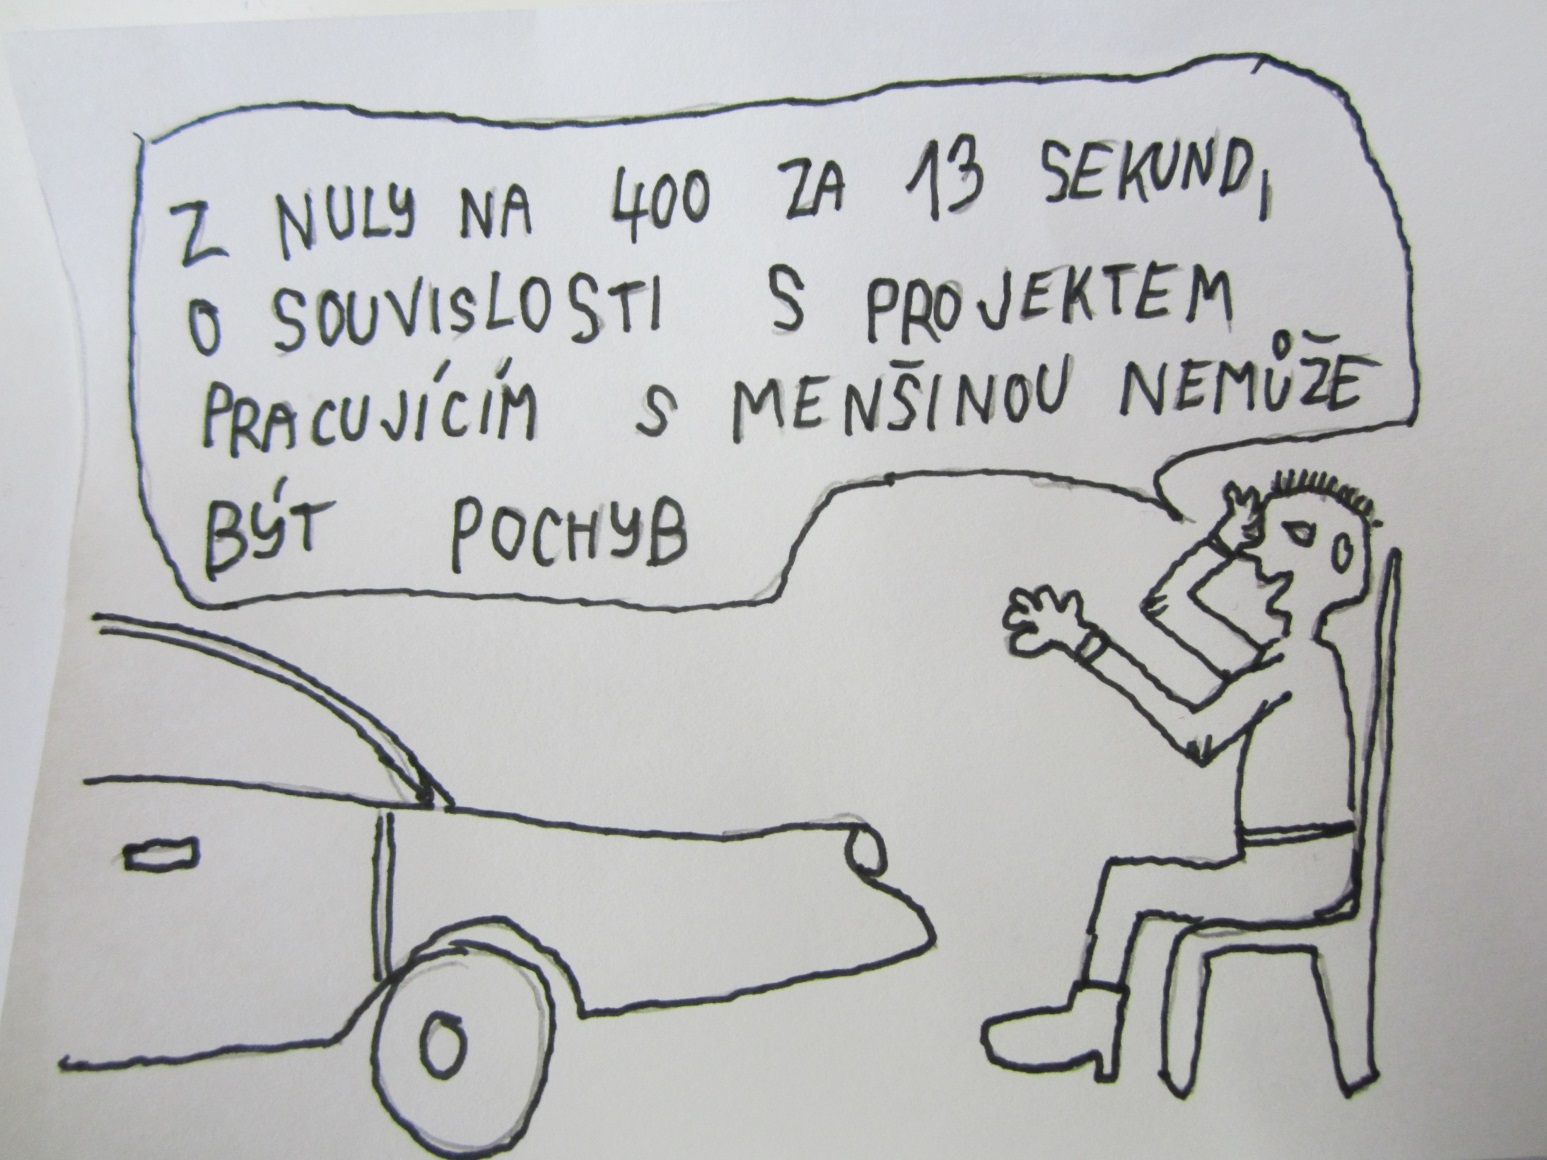 Z NULY NA 400 ZA 13 SEKUND,
O SOUVISLOSTI S PROJEKTEM
PRACUJÍCÍM S MENŠINOU NEMŮŽE
BÝT POCHYB